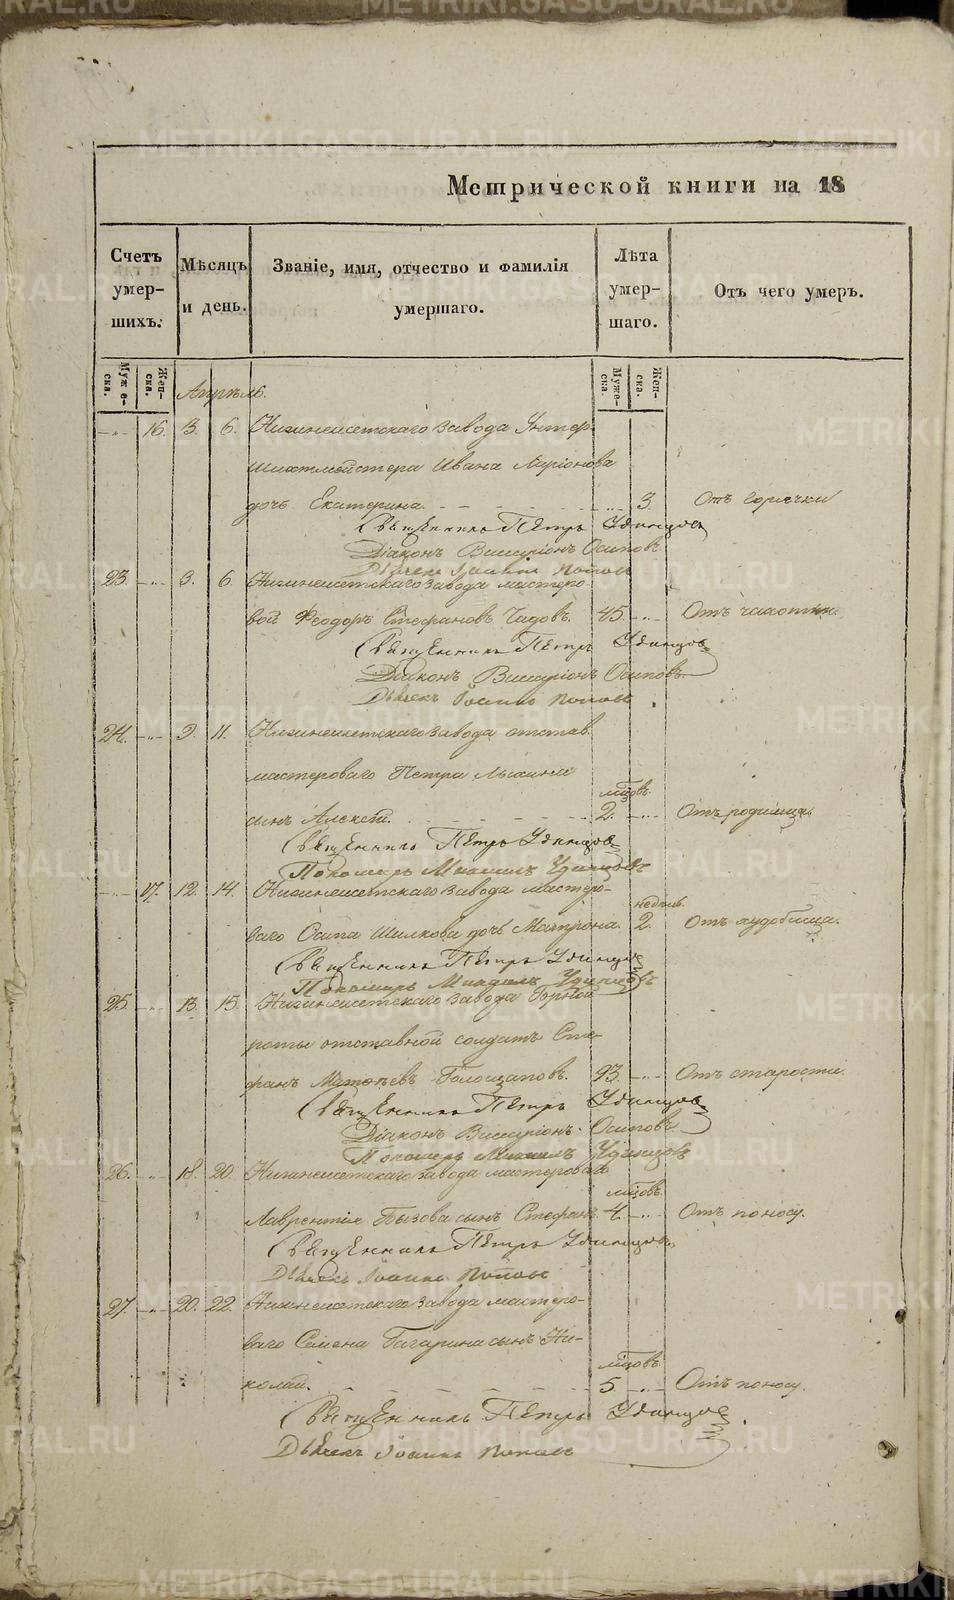 METRIKI.GASO-URAL.RU
Метрической книги на 18
Счетъ умер-шихъ.
Мѣсяцъ и день.
Званіе, имя, отчество и фамилія умершаго.
Лѣта умер-шаго.
Отъ чего умеръ.
Муже-ска.
Жен-ска.
Муже-ска.
Жен-ска.
Апрѣль.
16. 3. 6. Нижнеисетскаго завода Унтер-
шихтмейстера Ивана Ларіонова
дочь Екатерина. 3. Отъ горячки
Священникъ Петръ Удинцовъ
Діаконъ Виссаріонъ Осиповъ
Дьячекъ Іоаннъ Поповъ
23. 3. 6. Нижнеисетскаго завода мастеро-
вой Феодоръ Стефановъ 45. Отъ чахотки
Священникъ Петръ Удинцовъ
Діаконъ Виссаріонъ Осиповъ
Дьячекъ Іоаннъ Поповъ
24. 9. 11. Нижнеисетскаго завода отстав.
мастероваго Петра
мѣсцовъ
сынъ Алексѣй. 2. Отъ родимца.
Священникъ Петръ Удинцовъ
Пономарь Михаилъ Удинцовъ
17. 12. 14. Нижнеисетскаго завода мастеро-
недѣль
ваго Осипа Шилкова дочь Матрона. 2. Отъ худобища.
Священникъ Петръ Удинцовъ
Пономарь Михаилъ Удинцовъ
25. 13. 15. Нижнеисетскаго завода Горной
роты отставной солдатъ Сте-
фанъ 93. Отъ старости.
Священникъ Петръ Удинцовъ
Діаконъ Виссаріонъ Осиповъ
Пономарь Михаилъ Удинцовъ
26. 18. 20. Нижнеисетскаго завода мастероваго
мѣсцовъ
Лаврентія Пызова сынъ Стефанъ. 4. Отъ поносу.
Священникъ Петръ Удинцовъ
Дьячекъ Іоаннъ Поповъ
27. 20. 22. Нижнеисетскаго завода мастеро-
ваго Семена Гагарина сынъ Ни-
мѣсцовъ
колай. 5. Отъ поносу.
Священникъ Петръ Удинцовъ
Дьячекъ Іоаннъ Поповъ